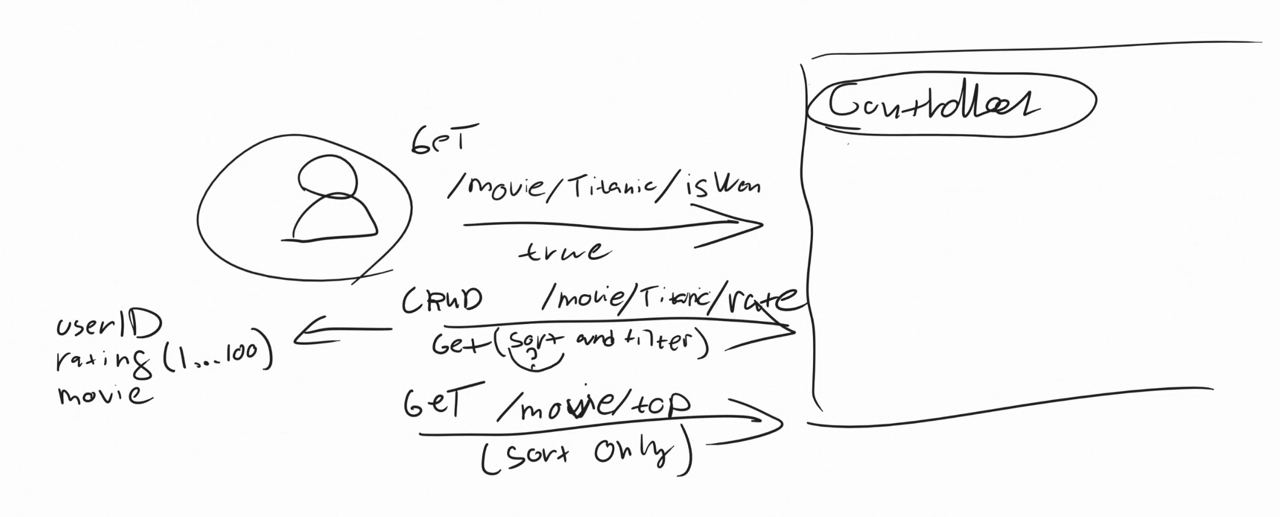 Controller
GeT
/movie/Titanic/isWon
true
CRUD /movie/Titanic/rate
Get (sort and filter)
?
userID
rating (1...100)
movie
GeT /movie/top
(Sort Only)